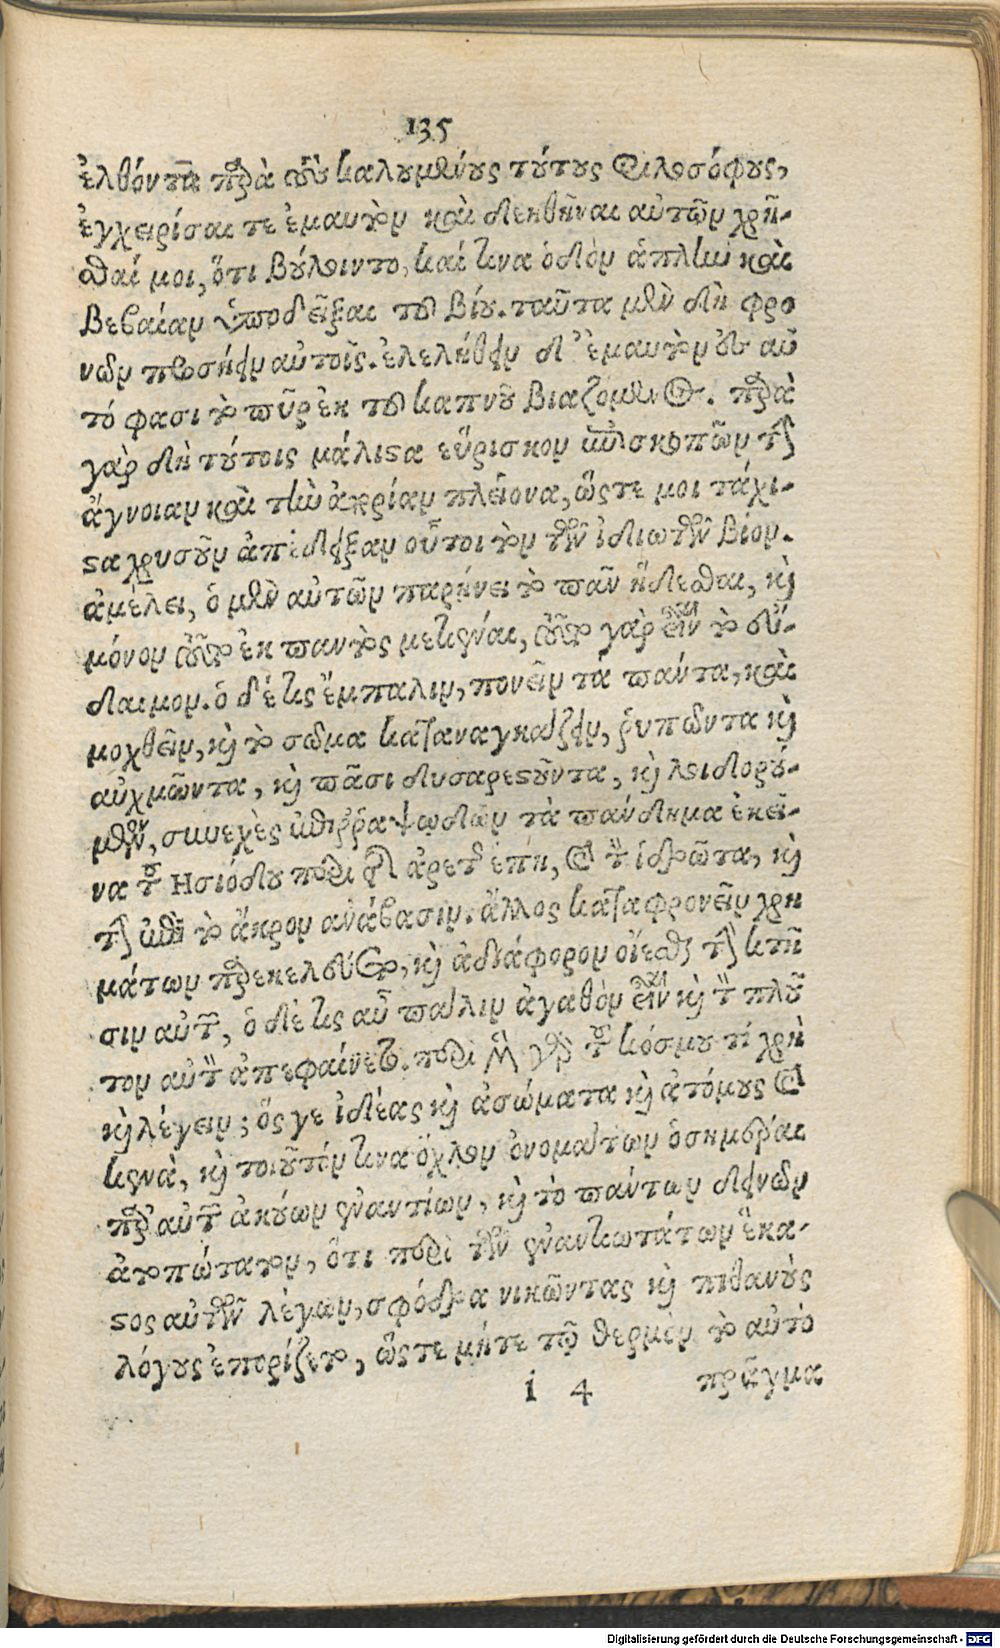 135
ἐλθόντα παρὰ τοὺς καλουμένους τούτους φιλοσόφους,
ἐγχειρίσαι τε ἐμαυτὸν καὶ δεηθῆναι αὐτῶν χρῆ-
σθαί μοι, ὅτι βούλοιντο, καί τινα ὁδὸν ἁπλῆν καὶ
βεβαίαν ὑποδεῖξαι τοῦ βίου. ταῦτα μὲν δὴ φρο
νῶν προσῄειν αὐτοῖς. ἐλελήθειν δ' ἐμαυτὸν ἐς αὐ
τό φασι τὸ πῦρ ἐκ τοῦ καπνοῦ βιαζόμενος. παρὰ
γὰρ δὴ τούτοις μάλιστα εὕρισκον ἐπισκοπῶν τὴν
ἄγνοιαν καὶ τὴν ἀκρίαν πλείονα, ὥστε μοι τάχι-
στα χρυσοῦν ἀπέδειξαν οὗτοι τὸν τῶν ἰδιωτῶν βίον.
ἀμέλει, ὁ μὲν αὐτῶν παρῄνει τὸ πᾶν ἥδεσθαι, καὶ
μόνον τοῦτο ἐκ παντὸς μετιέναι, τοῦτο γὰρ εἶναι τὸ εὔ-
δαιμον. ὁ δέ τις ἔμπαλιν, πονεῖν τὰ πάντα, καὶ
μοχθεῖν, καὶ τὸ σῶμα καταναγκάζειν, ῥυπῶντα καὶ
αὐχμῶντα, καὶ πᾶσι δυσαρεστοῦντα, καὶ λοιδορού-
μενον, συνεχὲς ἐπιῤῥαψῳδῶν τὰ πάνδημα ἐκεῖ-
να τοῦ Ησιόδου περὶ τῆς ἀρετῆς ἔπη, καὶ τὸν ἱδρῶτα, καὶ
τὴν ἐπὶ τὸ ἄκρον ἀνάβασιν. ἄλλος καταφρονεῖν χρη
μάτων παρεκελεύετο, καὶ ἀδιάφορον οἴεσθαι τὴν κτῆ
σιν αὐτῶν, ὁ δέ τις αὖ πάλιν ἀγαθὸν εἶναι καὶ τὸν πλοῦ
τον αὐτὸν ἀπεφαίνετο. περὶ μὲν γὰρ τοῦ κόσμου τί χρὴ
καὶ λέγειν; ὅς γε ἰδέας καὶ ἀσώματα καὶ ἀτόμους καὶ
κενὰ, καὶ τοιοῦτόν τινα ὄχλον ὀνομάτων ὁσημέραι
παρ' αὐτῶν ἀκούων ἐναντίων, καὶ τὸ πάντων δεινῶν
ἀτοπώτατον, ὅτι περὶ τῶν ἐναντιωτάτων ἕκα-
στος αὐτῶν λέγων, σφόδρα νικῶντας καὶ πιθανοὺς
λόγους ἐπορίζετο, ὥστε μήτε τῷ θερμὸν τὸ αὐτὸ
i 4 πρᾶγμα
Digitalisierung gefördert durch die Deutsche Forschungsgemeinschaft - DFG